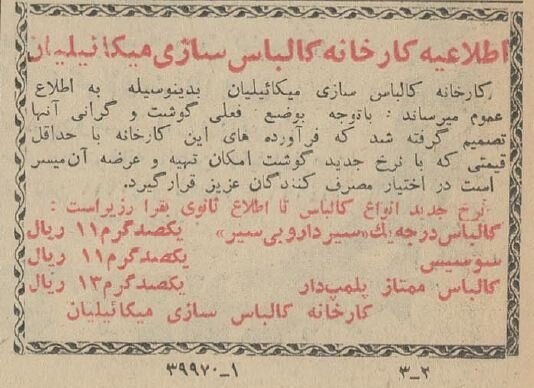 اطلاعیه کارخانه کالباس سازی میکائیلیان
کارخانه کالباس سازی میکائیلیان بدینوسیله به اطلاع
عموم میرساند : باتوجه بوضع فعلی گوشت و گرانی آنها
تصمیم گرفته شد که فرآورده های این کارخانه با حداقل
قیمتی که با نرخ جدید گوشت امکان تهیه و عرضه آن میسر
است در اختیار مصرف کنندگان عزیز قرار گیرد.
نرخ جدید انواع کالباس تا اطلاع ثانوی بقرا رزیراست :
کالباس درجه یك «سیر دار و بی سیر» یکصد گرم ۱۱ ریال
سوسیس یکصد گرم ۱۱ ریال
کالباس ممتاز پلمپ دار یکصد گرم ۱۳ ریال
کارخانه کالباس سازی میکائیلیان
۳_۲ ۳۹۹۷۰_۱